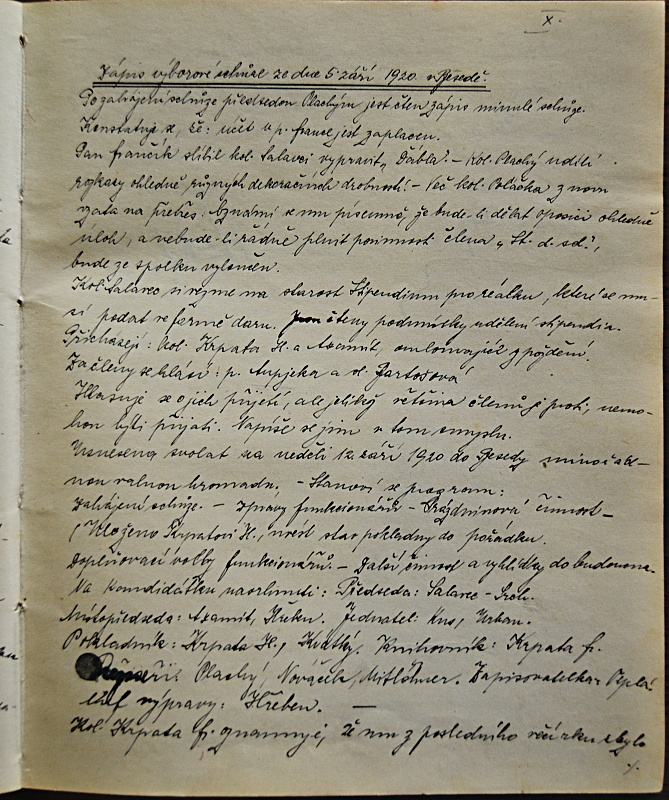 X.
Zápis výborové schůze ze dne 5. září 1920 v Besedě.
Po zahájení schůze předsedou Plachým jest čten zápis minulé schůze.
Konstatuje se, že: účet u p. jest zaplacen.
Pan Frančík slíbil kol. Salavci vypravit „Ďábla". – Kol. Plachý udělí
rozkazy ohledně různých dekoračních drobností. – Věc kol. Poláčka znovu
vzata na přetřes. Oznámí se mu písemně, že bude-li dělat oposici ohledně
úloh, a nebude-li řádně plnit povinnosti člena „St. d. sd.",
bude ze spolku vyloučen.
Kol. Salavec si vezme na starost Stipendium pro reálku, které se mu-
sí podat ve formě daru. čteny podmínky udělení stipendia.
Přicházejí: kol. Krpata H. a Axamit, omlouvajíc z pozdění.
Za členy se hlásí: p. a sl. Bartošová
Hlasuje se o jich přijetí, ale jelikož většina členů je proti, nemo-
hou býti přijati. Napíše se jim v tom smyslu.
Usneseno svolat na neděli 12. září 1920 do Besedy mimořád-
nou valnou hromadu. – Stanoví se program:
Zahájení schůze. – Zprávy funkcionářů – Prázdninová činnost –
(Uloženo Krpatovi H., uvést stav pokladny do pořádku.
Doplňovací volby funkcionářů. – Další činnost a vyhlídky do budoucna.
Na kandidátku navrhnuti: Předseda: Salavec – Srch.
Místopředseda: Axamit, Hušek. Jednatel: Kus, Urban.
Pokladník: Krpata H., Krátký. Knihovník: Krpata fr.
Plachý, Nováček, Zapisovatelka: Teplá.
šéf výpravy: Hřeben. —
Kol. Krpata fr. oznamuje, že mu z posledního večírku zbylo
./.